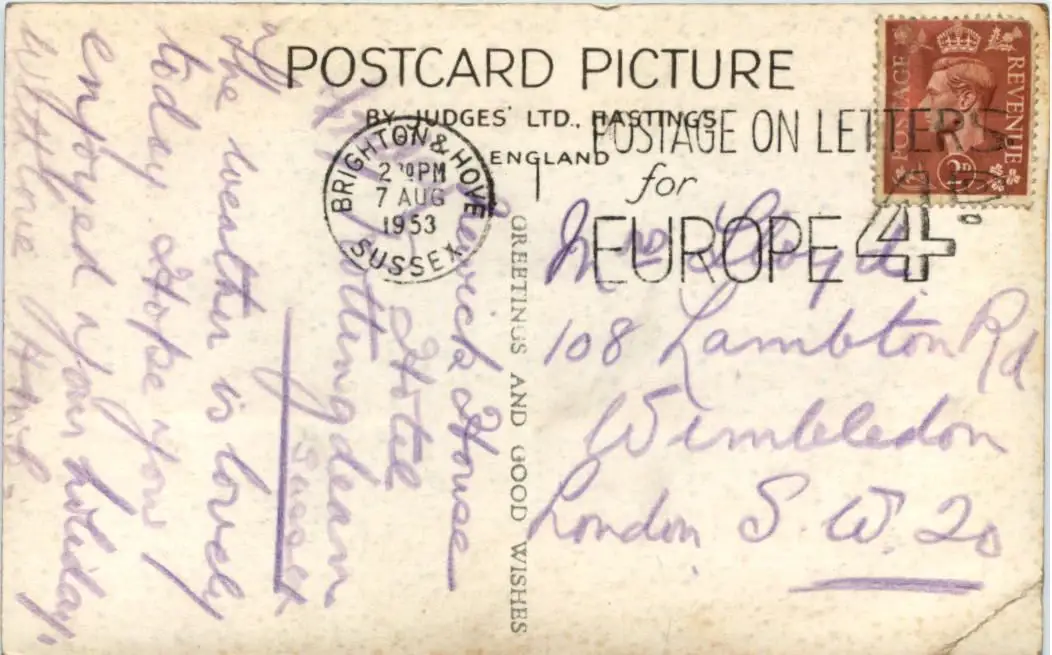 POSTCARD PICTURE
BY JUDGES' LTD., HASTINGS
ENGLAND
BRIGHTON & HOVE
PM
7 AUG
1953
SUSSEX
POSTAGE ON LETTERS
for
EUROPE 4D.
POSTAGE REVENUE
2D
House
Hotel
Rottingdean
Sussex
The weather is lovely
today Hope you
enjoyed your holiday.
With love
GREETINGS AND GOOD WISHES
Mrs Lloyd
108 Lambton Rd
Wimbledon
London S.W. 20